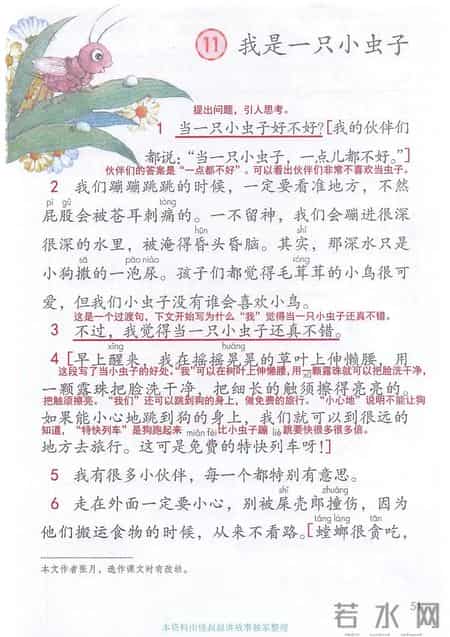 11 我是一只小虫子
提出问题，引人思考。
1 当一只小虫子好不好？[我的伙伴们
都说：“当一只小虫子，一点儿都不好。”]
伙伴们的答案是“一点都不好”。可以看出伙伴们非常不喜欢当虫子。
2 我们蹦蹦跳跳的时候，一定要看准地方，不然
pì gu tòng
屁股会被苍耳刺痛的。一不留神，我们会蹦进很深
hūn shí
很深的水里，被淹得昏头昏脑。其实，那深水只是
sā pāo niào
小狗撒的一泡尿。孩子们都觉得毛茸茸的小鸟很可
爱，但我们小虫子没有谁会喜欢小鸟。
这是一个过渡句，下文开始写为什么“我”觉得当一只小虫子还真不错。
3 不过，我觉得当一只小虫子还真不错。
xǐng huàng
4 [早上醒来，我在摇摇晃晃的草叶上伸懒腰，用
这段写了当小虫子的好处：“我”可以在树叶上伸懒腰,用一颗露珠就可以把脸洗干净，
一颗露珠把脸洗干净，把细长的触须擦得亮亮的。
把触须擦亮。“我们”还可以跳到狗的身上，做免费的旅行。“小心地”说明不能让狗
如果能小心地跳到狗的身上，我们就可以到很远的
知道，“特快列车”是狗跑起来 miǎn fèi 比小虫子蹦 liè 跳要快很多很多倍。
地方去旅行。这可是免费的特快列车呀！]
5 我有很多小伙伴，每一个都特别有意思。
shǐ zhuàng
6 走在外面一定要小心，别被屎壳郎撞伤，因为
他们搬运食物的时候，从来不看路。[螳螂很贪吃，
táng láng tān
本文作者张月，选作课文时有改动。
本资料由怪叔叔讲故事独家整理
若水网